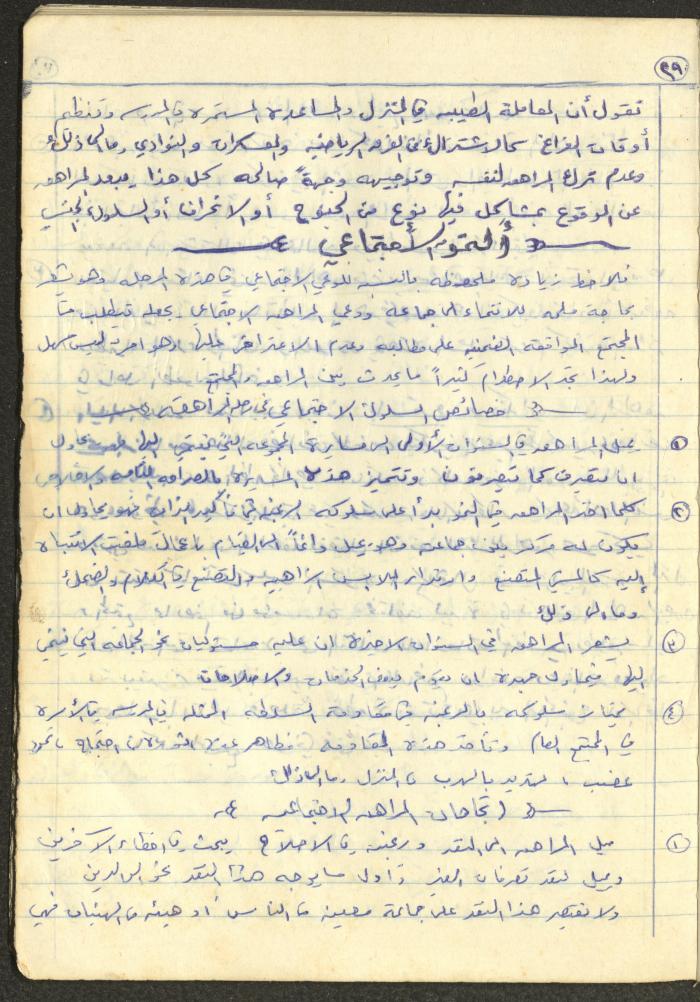 ٢٩
نقول أن المعاملة الطيبه في المنزل والمساعده المستمره في المدرسه وتنظيم
أوقات الفراغ كالاشتراك في الفرق الرياضيه والمعسكرات والنوادي وما الى ذلك
وعدم ترك المراهق لنفسه وتوجيهه وجهةً صالحه كل هذا يبعد المراهق
عن الوقوع بمشاكل فيها نوع من الجنوح أو الانحراف أو السلوك الجنسي
النمو الأجتماعي
نلاحظ زيادة ملحوظه بالنسبه للوعي الاجتماعي في هذه المرحله وهو يشعر
بحاجة ملحه للانتماء الى جماعه ووعي المراهق الاجتماعي يجعله يتطلب من
المجتمع الموافقه الضمنيه على مطالبه وعدم الاعتراض عليها وهو امر ليس سهل
ولهذا نجد الاصطدام كثيراً ما يحدث بين المراهق والمجتمع
خصائص السلوك الاجتماعي في مرحلة المراهقه
١ يميل المراهق في السنوات الأولى الى مسايرة المجموعه التي ينتمي اليها يحاول
ان يتصرف كما يتصرفون وتتميز هذه المسايره بالصراحه التامه والاخلاص
٢ كلما اخذ المراهق في النمو بدأ على سلوكه الرغبه في تأكيد الذات فهو يحاول ان
يكون له مركز بين جماعته وهو يميل دائماً الى القيام بأعمال ملفته الانتباه
إليه كالمشي المتصنع وارتداء الملابس الزاهيه والتصنع في الكلام والضحك
وما الى ذلك
٣ يشعر المراهق في السنوات الاخيره ان عليه مسئوليات نحو الجماعه التي ينتمي
اليها فيحاول جهده ان يقوم ببعض الخدمات والاصلاحات
٤ يمتاز سلوكه بالرغبه في مقاومة السلطه الممثله في المدرسه في الأسره
في المجتمع العام وتأخذ هذه المقاومه مظاهر عده احتجاج تمرد
غضب التهديد بالهرب من المنزل وما الى ذلك
اتجاهات المراهق الاجتماعيه
١ ميل المراهق الى النقد ورغبته في الاصلاح يبحث في اخطاء الآخرين
ويميل لنقد تصرفات الغير وأول ما يوجه هذا النقد نحو الوالدين
ولا يقتصر هذا النقد على جماعة معينه من الناس أو هيئه من الهيئات فهي